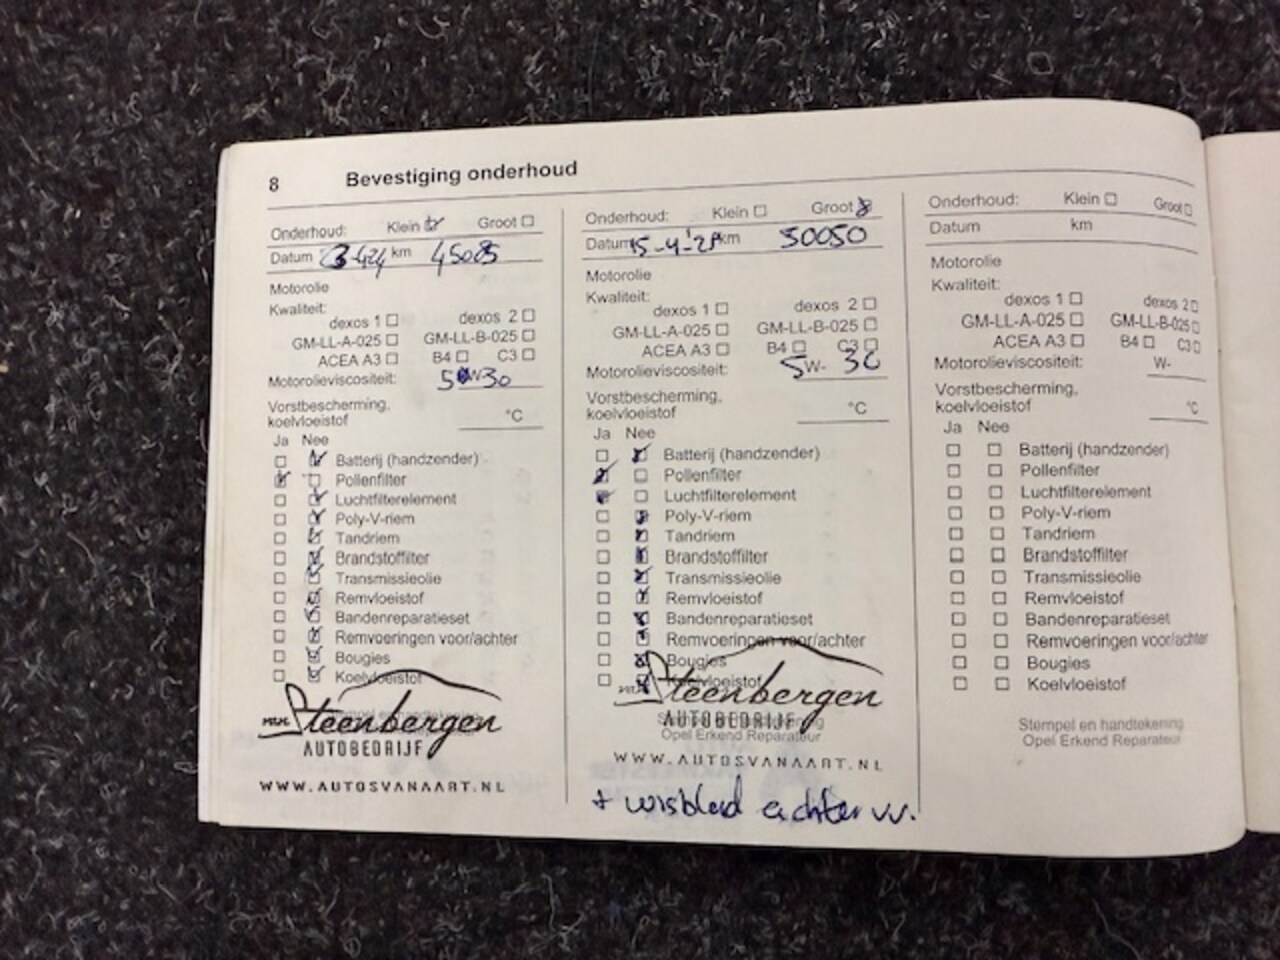 8 Bevestiging onderhoud
Onderhoud: Klein Groot
Datum km 45085
Motorolie
Kwaliteit:
dexos 1 dexos 2
GM-LL-A-025 GM-LL-B-025
ACEA A3 B4 C3
Motorolieviscositeit: 5 W- 30
Vorstbescherming,
koelvloeistof °C
Ja Nee
Batterij (handzender)
Pollenfilter
Luchtfilterelement
Poly-V-riem
Tandriem
Brandstoffilter
Transmissieolie
Remvloeistof
Bandenreparatieset
Remvoeringen voor/achter
Bougies
Koelvloeistof
Steenbergen
AUTOBEDRIJF
WWW.AUTOSVANAART.NL
Onderhoud: Klein Groot
Datum km 50050
Motorolie
Kwaliteit:
dexos 1 dexos 2
GM-LL-A-025 GM-LL-B-025
ACEA A3 B4 C3
Motorolieviscositeit: 5 W- 30
Vorstbescherming,
koelvloeistof °C
Ja Nee
Batterij (handzender)
Pollenfilter
Luchtfilterelement
Poly-V-riem
Tandriem
Brandstoffilter
Transmissieolie
Remvloeistof
Bandenreparatieset
Remvoeringen voor/achter
Bougies
Koelvloeistof
Steenbergen
AUTOBEDRIJF
Stempel en handtekening
Opel Erkend Reparateur
WWW.AUTOSVANAART.NL
+ wisblad achter vv.
Onderhoud: Klein Groot
Datum km
Motorolie
Kwaliteit:
dexos 1 dexos 2
GM-LL-A-025 GM-LL-B-025
ACEA A3 B4 C3
Motorolieviscositeit: W-
Vorstbescherming,
koelvloeistof °C
Ja Nee
Batterij (handzender)
Pollenfilter
Luchtfilterelement
Poly-V-riem
Tandriem
Brandstoffilter
Transmissieolie
Remvloeistof
Bandenreparatieset
Remvoeringen voor/achter
Bougies
Koelvloeistof
Stempel en handtekening
Opel Erkend Reparateur